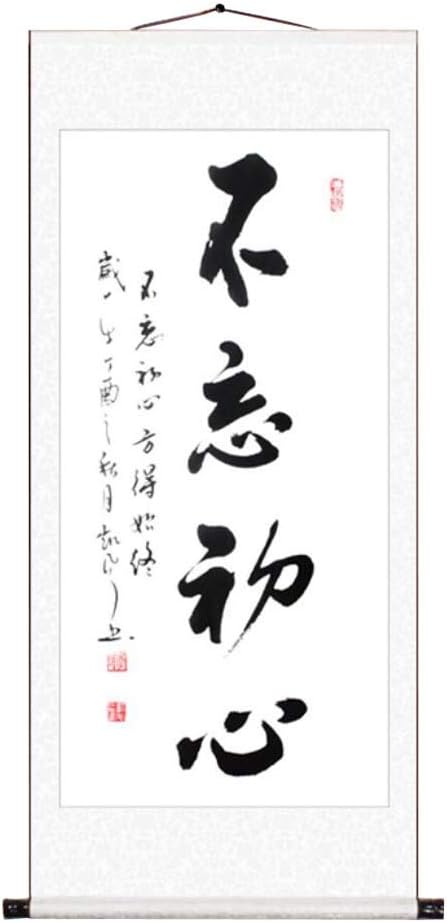 不忘初心
不忘初心方得始终
歲次丁酉之秋月